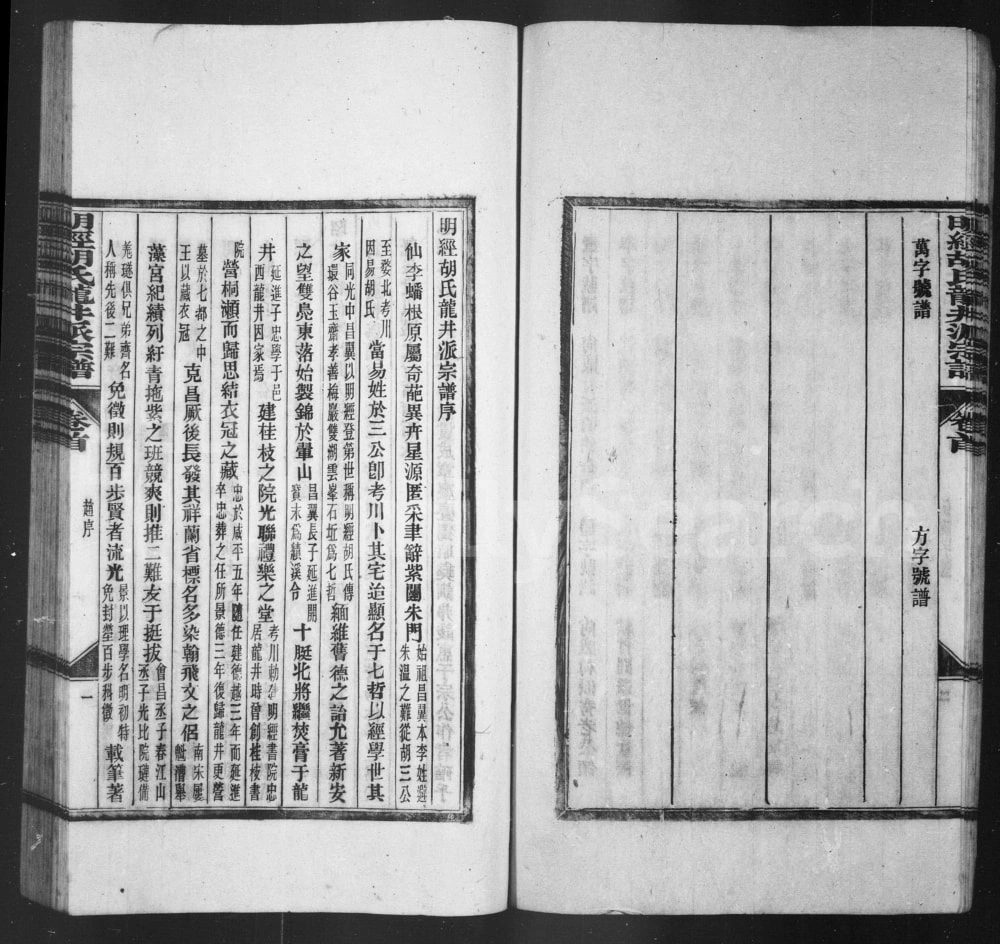 明經胡氏龍井派宗譜
卷首
二
萬字號譜
方字號譜
明經胡氏龍井派宗譜序
仙李蟠根原屬奇葩異卉星源匿采聿辭紫闥朱門始祖昌翼本李姓避朱溫之難從胡三公
至婺北考川因易胡氏當易姓於三公卽考川卜其宅迨顯名于七哲以經學世其
家同光中昌翼以明經登第世稱明經胡氏傳環谷玉齋孝善梅巖雙湖雲峯石坵爲七哲緬維舊德之詒允著新安
之望雙鳧東落始製錦於翬山昌翼長子延進開寶末爲績溪令十艇北將繼焚膏于龍
井延進子忠學于邑西龍井因家焉建桂枝之院光聯禮樂之堂考川勅建明經書院忠居龍井時曾創桂枝書
院營桐瀨而歸思結衣冠之藏忠於咸平五年隨任建德越三年而延進卒忠葬之任所景德三年復歸龍井更營
墓於七都之中王以藏衣冠克昌厥後長發其祥蘭省標名多染翰飛文之侶南宋屢魁漕舉
藻宮紀績列紆青拖紫之班競爽則推二難友于挺拔會昌丞子春江山丞子光比院瓘備
羌璲俱兄弟齊名人稱先後二難免徵則規百步賢者流光景以理學名明初特免封塋百步科徵載筆著
明經胡氏龍井派宗譜
卷首
趙序
一